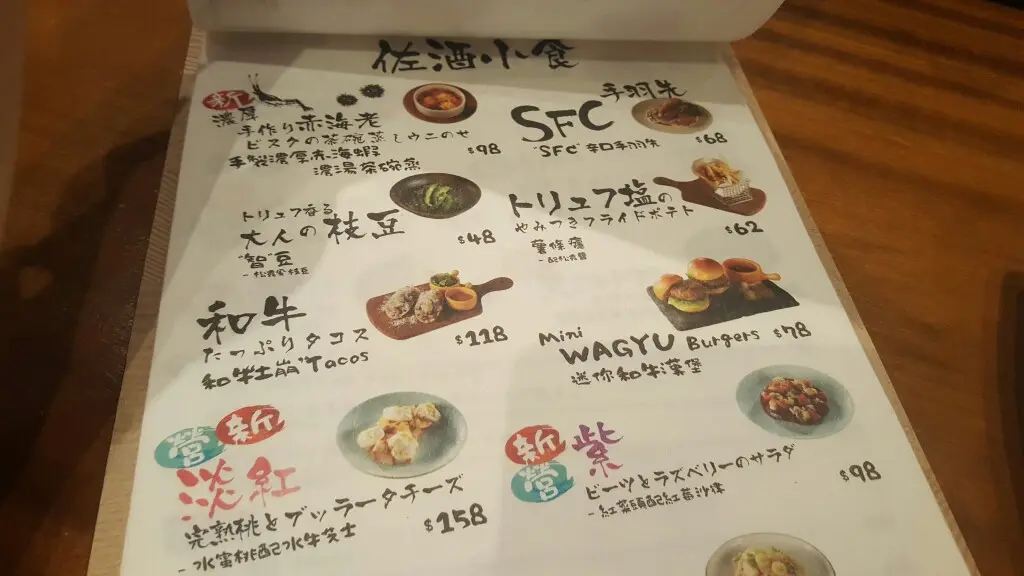 佐酒小食
新
濃厚
手作り赤海老
ビスクの茶碗蒸しウニのせ
手製濃厚赤海蝦
濃湯茶碗蒸
$98
手羽先
SFC
"SFC"辛口手羽先
$68
トリュフ香る
大人の枝豆
"智"豆
$48
トリュフ塩の
やみつきフライドポテト
薯條癮
$62
和牛
たっぷりタコス
和牛土崩"Tacos
$118
Mini
WAGYU Burgers
迷你和牛漢堡
$78
營 新
淡紅
完熟桃とブッラータチーズ
- 水蜜桃配水牛芝士
$158
新
營
紫
ビーツとラズベリーのサラダ
- 紅菜頭配紅莓沙律
$98